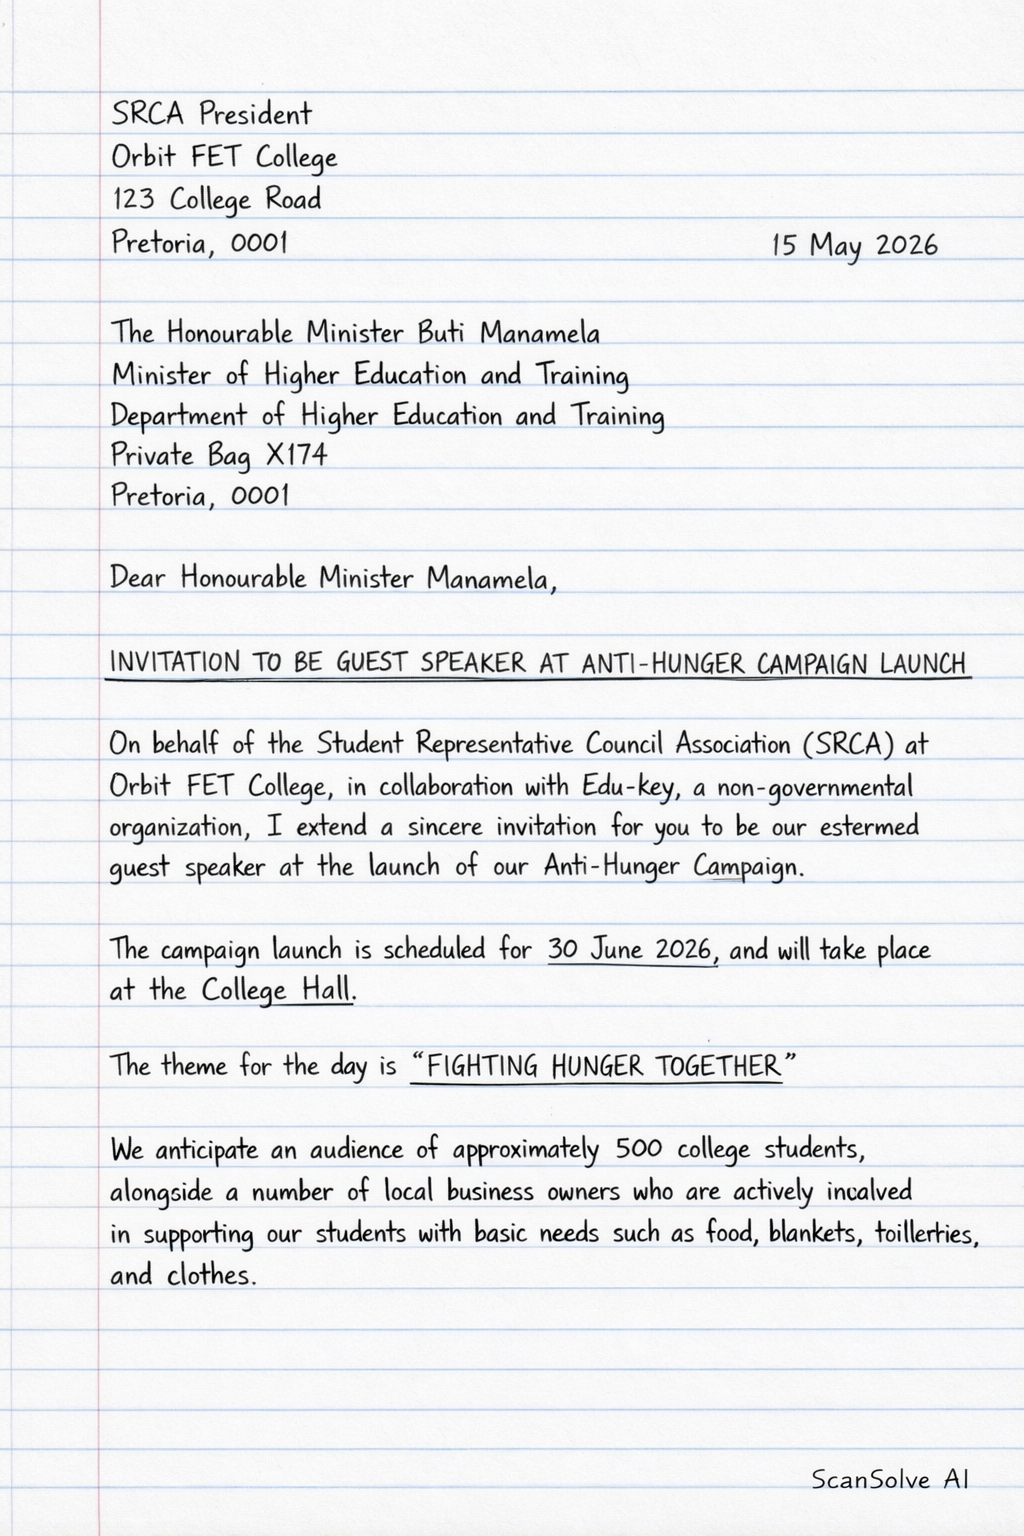 SRCA President
Orbit FET College
123 College Road
Pretoria, 0001
15 May 2026
The Honourable Minister Buti Manamela
Minister of Higher Education and Training
Department of Higher Education and Training
Private Bag X174
Pretoria, 0001
Dear Honourable Minister Manamela,
INVITATION TO BE GUEST SPEAKER AT ANTI-HUNGER CAMPAIGN LAUNCH
On behalf of the Student Representative Council Association (SRCA) at
Orbit FET College, in collaboration with Edu-key, a non-governmental
organization, I extend a sincere invitation for you to be our estermed
guest speaker at the launch of our Anti-Hunger Campaign.
The campaign launch is scheduled for 30 June 2026, and will take place
at the College Hall.
The theme for the day is “FIGHTING HUNGER TOGETHER”
We anticipate an audience of approximately 500 college students,
alongside a number of local business owners who are actively incalved
in supporting our students with basic needs such as food, blankets, toillerties,
and clothes.
ScanSolve AI